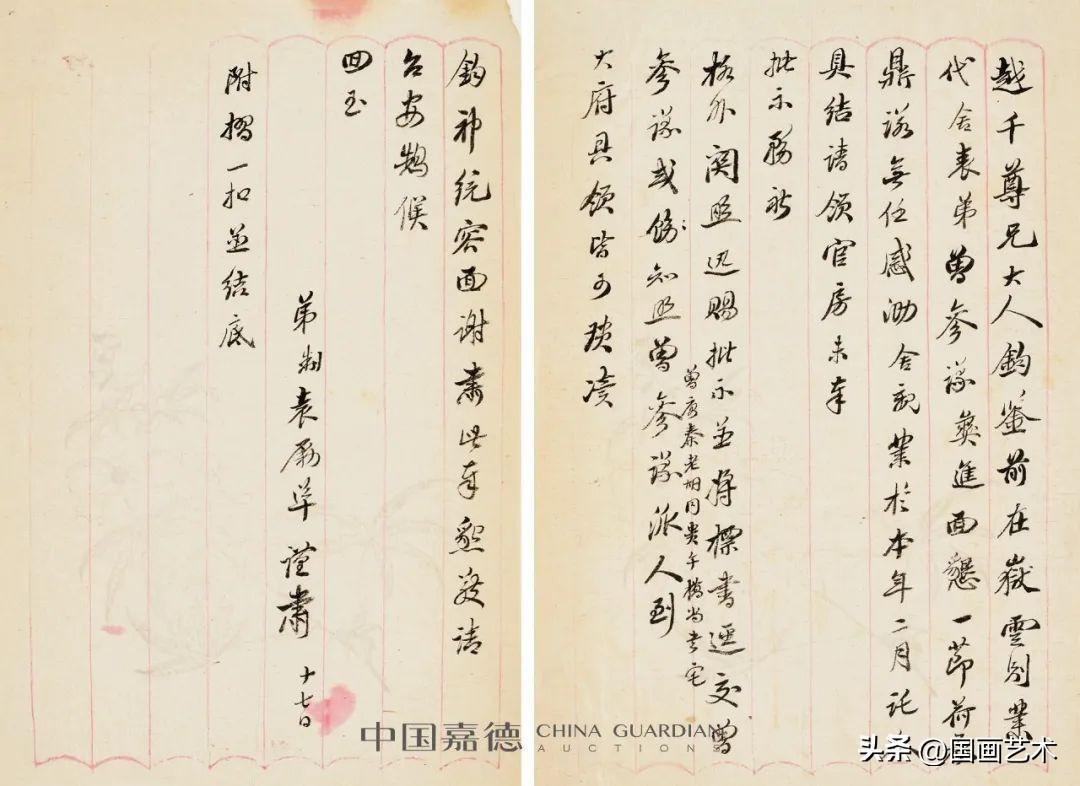 越千尊兄大人鈞鑒前在嶽雲別業
代舍表弟曾參議彝進面懇一節荷
鼎諾無任感泐舍親業於本年二月託
具結請領官房未奉
批示務祈
格外關照迅賜批示並將標書逕交曾
曾寓秦老胡同貴午橋尚書宅
參議或飭知照曾參議派人到
大府具領皆可瑣凟
鈞神統容面謝肅此奉懇敬請
台安鵠候
回玉
弟制袁勵準謹肅 十七日
附摺一扣並結底
中国嘉德 CHINA GUARDIAN
AUCTIONS
头条 @国画艺术